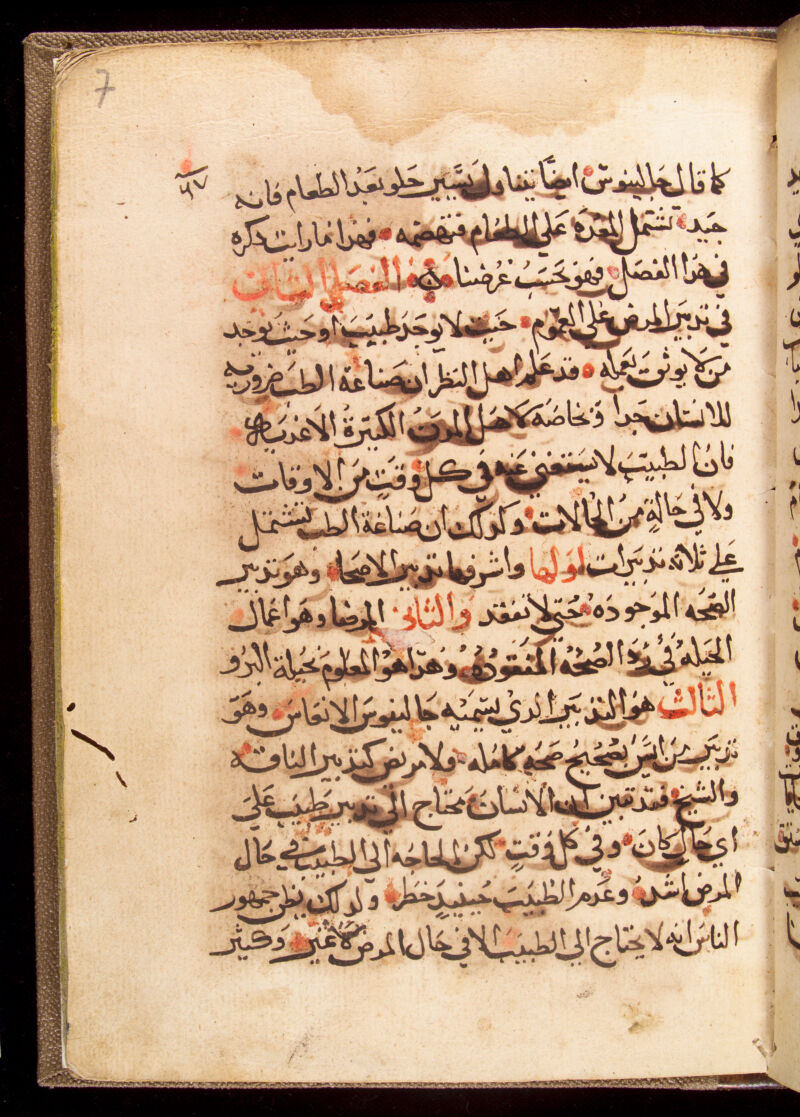 7
٦٧
كما قال جالينوس ايضاً يتناول يسير حلو بعد الطعام فانه
جيد تشتمل المعده على الطعام فتهضمه فهذا ما رايت ذكره
في هذا الفصل فهو بحسب غرضنا الفصل الثاني
في تدبير المرض على العموم حيث لا يوجد طبيب او حيث يوجد
من لا يوثق بعمله قد علم اهل النظر ان صناعة الطب ضروريه
للانسان جدا وبخاصه لاهل المدن الكثيرة الاغذيه
فان الطبيب لا يستغني عنه في كل وقت من الاوقات
ولا في حالة من الحالات وكذلك ان صناعة الطب تشتمل
على ثلاثه تدبيرات اولها واشرفها تدبير الاصحا وهو تدبير
الصحه الموجوده حتى لا تفقد والثاني المرضا وهو اعمال
الحيله في رد الصحه المفقوده وهذا هو المعلوم بحيلة البرو
الثالث هو التدبير الذي يسميه جالينوس الانعاش وهو
تدبير من ليس بصحيح صحه كامله ولا مريض كتدبير الناقه
والشيخ فقد تبين ان الانسان محتاج الى تدبير طبيب على
اي حال كان وفي كل وقت لكن الحاجه الى الطبيب في حال
المرض اشد وعدم الطبيب حينيذ خطر ولذلك يظن جمهور
الناس انه لا يحتاج الى الطبيب الا في حال المرض لا غير وكثير